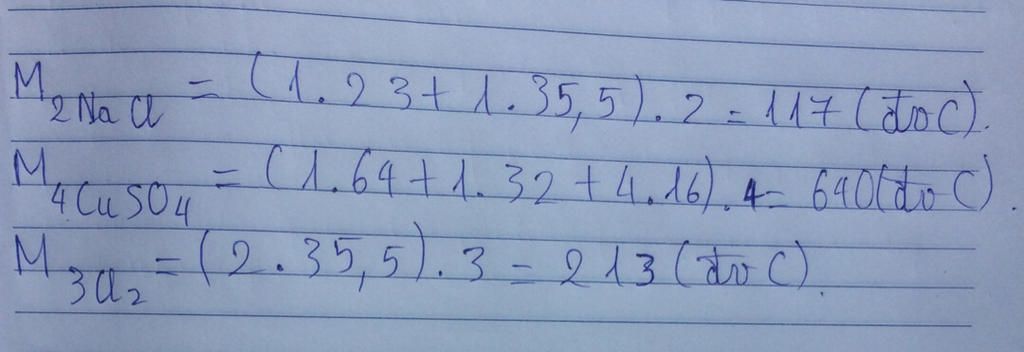 M2NaCl = (1.23+1.35,5).2 = 117 (đvC).
M4CuSO4 = (1.64+1.32+4.16).4 = 640(đvC).
M3Cl2 = (2.35,5).3 = 213 (đvC).